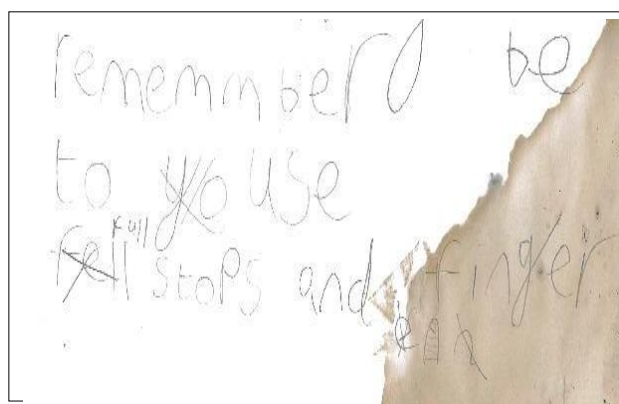 rememmber be
to use
full
stops and finger